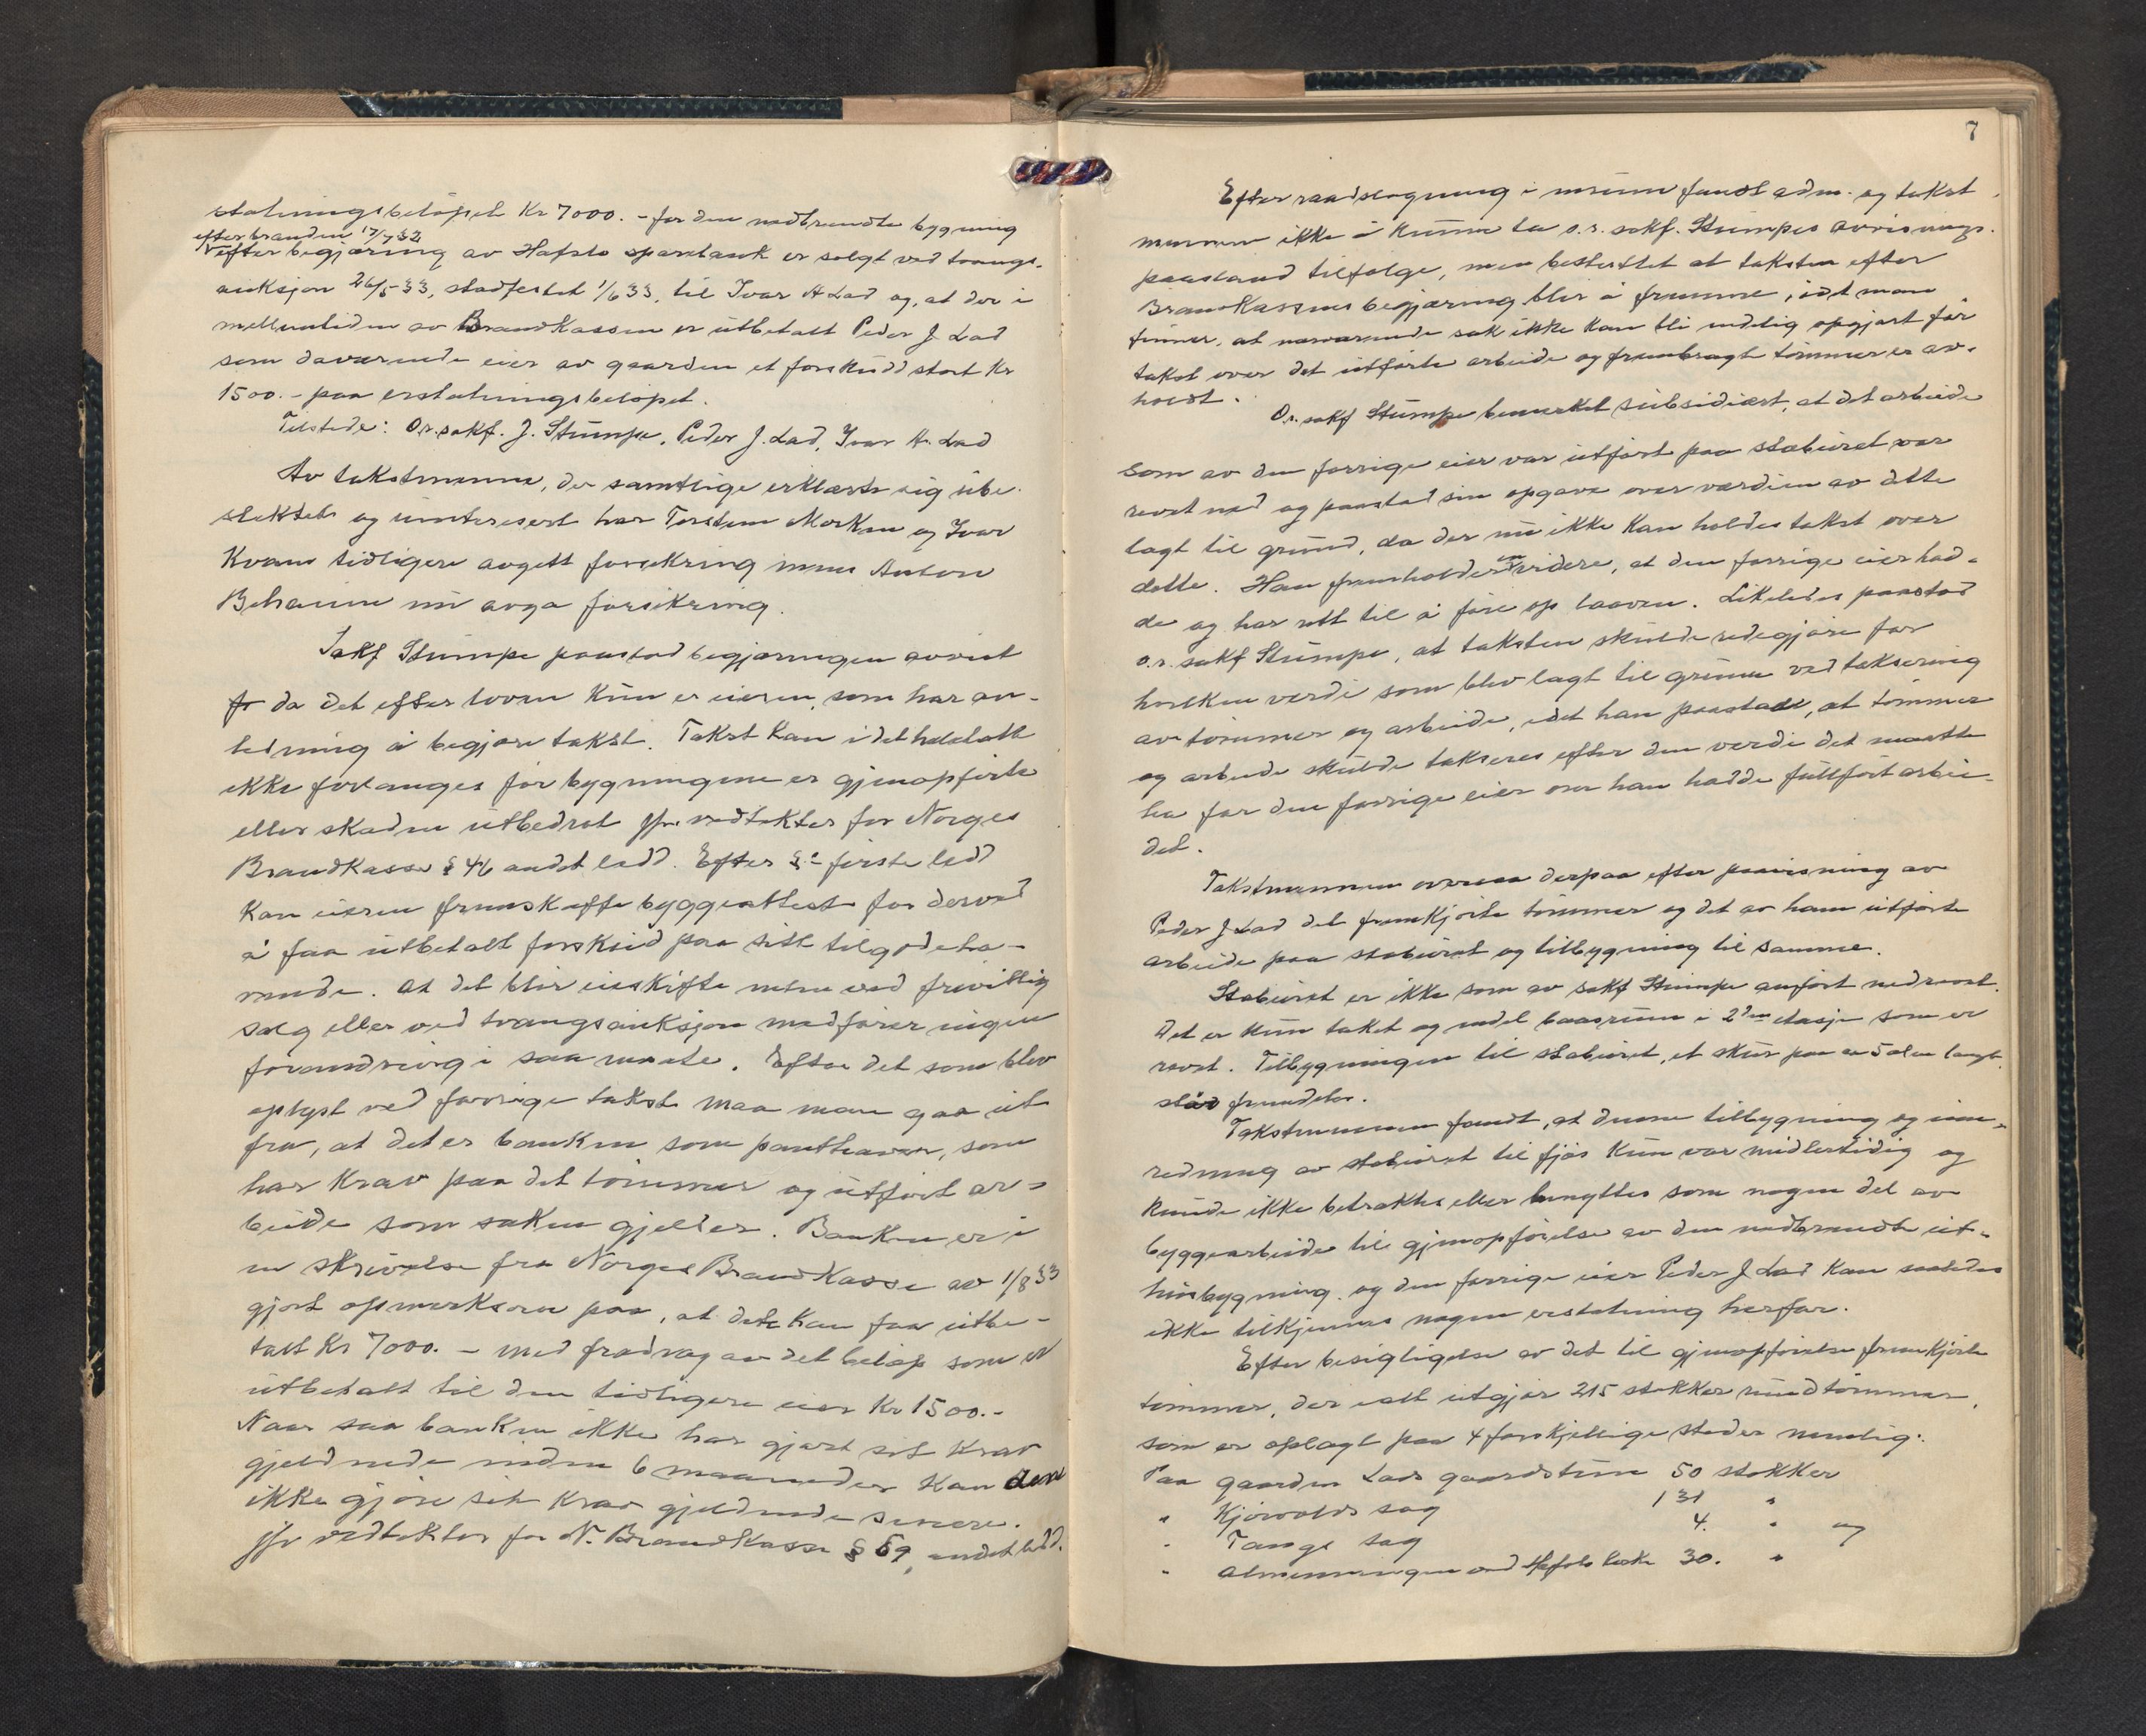 statningsbeløpet Kr 7000.- for den nedbrendte bygning
efter branden 17/7 32
efter begjæring av Hafslo sparebank er solgt ved tvangs-
auksjon 26/5 33, stadfestet 1/6 33, til Ivar H Lad og, at der i
mellemtiden av Brandkassen er utbetalt Peder J. Lad
som daværende eier av gaarden et forskudd stort Kr
1500.- paa erstatningsbeløpet.
Tilstede: O.r.sakf. J. Stumpe, Peder J. Lad, Ivar H. Lad
Av takstmennene, der samtlige erklærte sig ube-
slektet og uinteresert har Torstein Morken og Ivar
Kvam tidligere avgitt forsikring mens Anton
Beheim nu avga forsikring.
Sakf Stumpe paastod begjæringen avvist
fo da det efter loven kun er eieren, som har an-
ledning å begjære takst. Takst kan i det hele tatt
ikke forlanges før bygningene er gjenopførte
eller skaden utbedret jfr. vedtekter for Norges
Brandkasse § 46 andet ledd. Efter §.s første ledd
kan eieren fremskaffe byggeattest for derved
å faa utbetalt forskud paa sitt tilgodeha-
vende. At det blir eierskifte enten ved frivillig
salg eller ved tvangsauksjon medfører ingen
forandring i saa maate. Efter det som blev
oplyst ved forrige takst maa man gaa ut
fra, at det er banken som panthaver, som
har krav paa det tømmer og utført ar-
beide som saken gjelder. Banken er i
en skrivelse fra Norges Brandkasse av 1/8 33
gjort opmerksom paa, at dete kan faa utbe-
talt Kr 7000.- med fradrag av det beløp som er
utbetalt til den tidligere eier Kr 1500.-
Naar saa banken ikke har gjort sit krav
gjeldende inden 6 maaneder kan den
ikke gjøre sit krav gjeldende senere.
jfr vedtekter for N. Brandkasse § 59, andet ledd.
7
Efter raadslagning i enrum fandt adm. og takst
mennene ikke å kunne ta o.r. sakf. Stumpes avvisnings-
paastand tilfølge, men besluttet at taksten efter
Brandkassens begjæring blir å fremme, idet man
finner, at nærværende sak ikke kan bli endelig opgjort før
takst over det utførte arbeide og frembragte tømmer er av-
holdt.
O.r. sakf Stumpe bemerket subsidiært, at det arbeide
som av den forrige eier var utført paa stabüret var
revet ned og paastod sin opgave over værdien av dette
lagt til grund, da der nu ikke kan holdes takst over
dette. Han fremholder en videre, at den forrige eier had-
de og har rett til å føre op laaven. Likeledes paastod
o.r. sakf Stumpe, at taksten skulde redegjøre for
hvilken verdi som blev lagt til grunn ved taksering
av tømmer og arbeide, idet han paastod, at tømmer
og arbeide skulde takseres efter den verdi det maatte
ha for den forrige eier om han hadde fullført arbei-
det.
Takstmennene oversaa derpaa efter paavisning av
Peder J Lad det fremkjørte tømmer og det av ham utførte
arbeide paa stabüret og tilbygning til samme.
Stabüret er ikke som av sakf Stumpe anført nedrevet.
Det er kun taket og endel baasrum i 2den etasje som er
revet. Tilbygningen til stabüret, et skur paa ca 5 alen lengde
står fremdeles.
Takstmennene fandt, at denne tilbygning og inn-
redning av stabüret til fjøs kun var midlertidig og
kunde ikke betraktes eller benyttes som nogen del av
byggearbeide til gjenopførelse av den nedbrendte ut-
husbygning. og den forrige eier Peder J Lad kan saaledes
ikke tilkjennes nogen erstatning herfor.
Efter besigtigelse av det til gjenopførelse fremkjørte
tømmer, der i alt utgjør 215 stokker rundtømmer,
som er oplagt paa 4 forskjellige steder nemlig:
Paa gaarden Lads gaardstun 50 stokker
" Kjörvolds sag 131 "
" Tangs sag 4. " og
" Almenningen ved Hafslo kirke 30. "